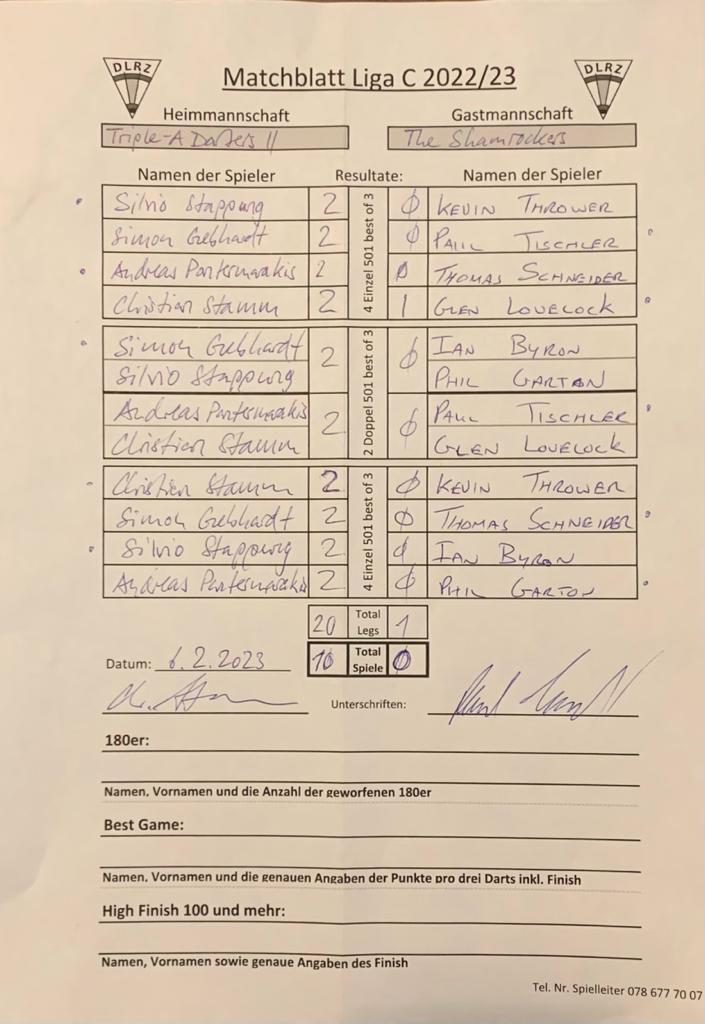 DLRZ DLRZ
Matchblatt Liga C 2022/23
Heimmannschaft Gastmannschaft
Triple-A Darters II The Shamrockers
Namen der Spieler Resultate: Namen der Spieler
4 Einzel 501 best of 3
Silvio Stappung 2 0 KEVIN THROWER
Simon Gebhardt 2 0 PAUL TISCHLER
Andreas Pantermarakis 2 0 THOMAS SCHNEIDER
Christian Stamm 2 1 GLEN LOVELOCK
2 Doppel 501 best of 3
Simon Gebhardt 2 0 IAN BYRON
Silvio Stappung PHIL GARTON
Andreas Pantermarakis 2 0 PAUL TISCHLER
Christian Stamm GLEN LOVELOCK
4 Einzel 501 best of 3
Christian Stamm 2 0 KEVIN THROWER
Simon Gebhardt 2 0 THOMAS SCHNEIDER
Silvio Stappung 2 0 IAN BYRON
Andreas Pantermarakis 2 0 PHIL GARTON
20 Total Legs 1
Datum: 6.2.2023 10 Total Spiele 0
Unterschriften:
180er:
Namen, Vornamen und die Anzahl der geworfenen 180er
Best Game:
Namen, Vornamen und die genauen Angaben der Punkte pro drei Darts inkl. Finish
High Finish 100 und mehr:
Namen, Vornamen sowie genaue Angaben des Finish
Tel. Nr. Spielleiter 078 677 70 07